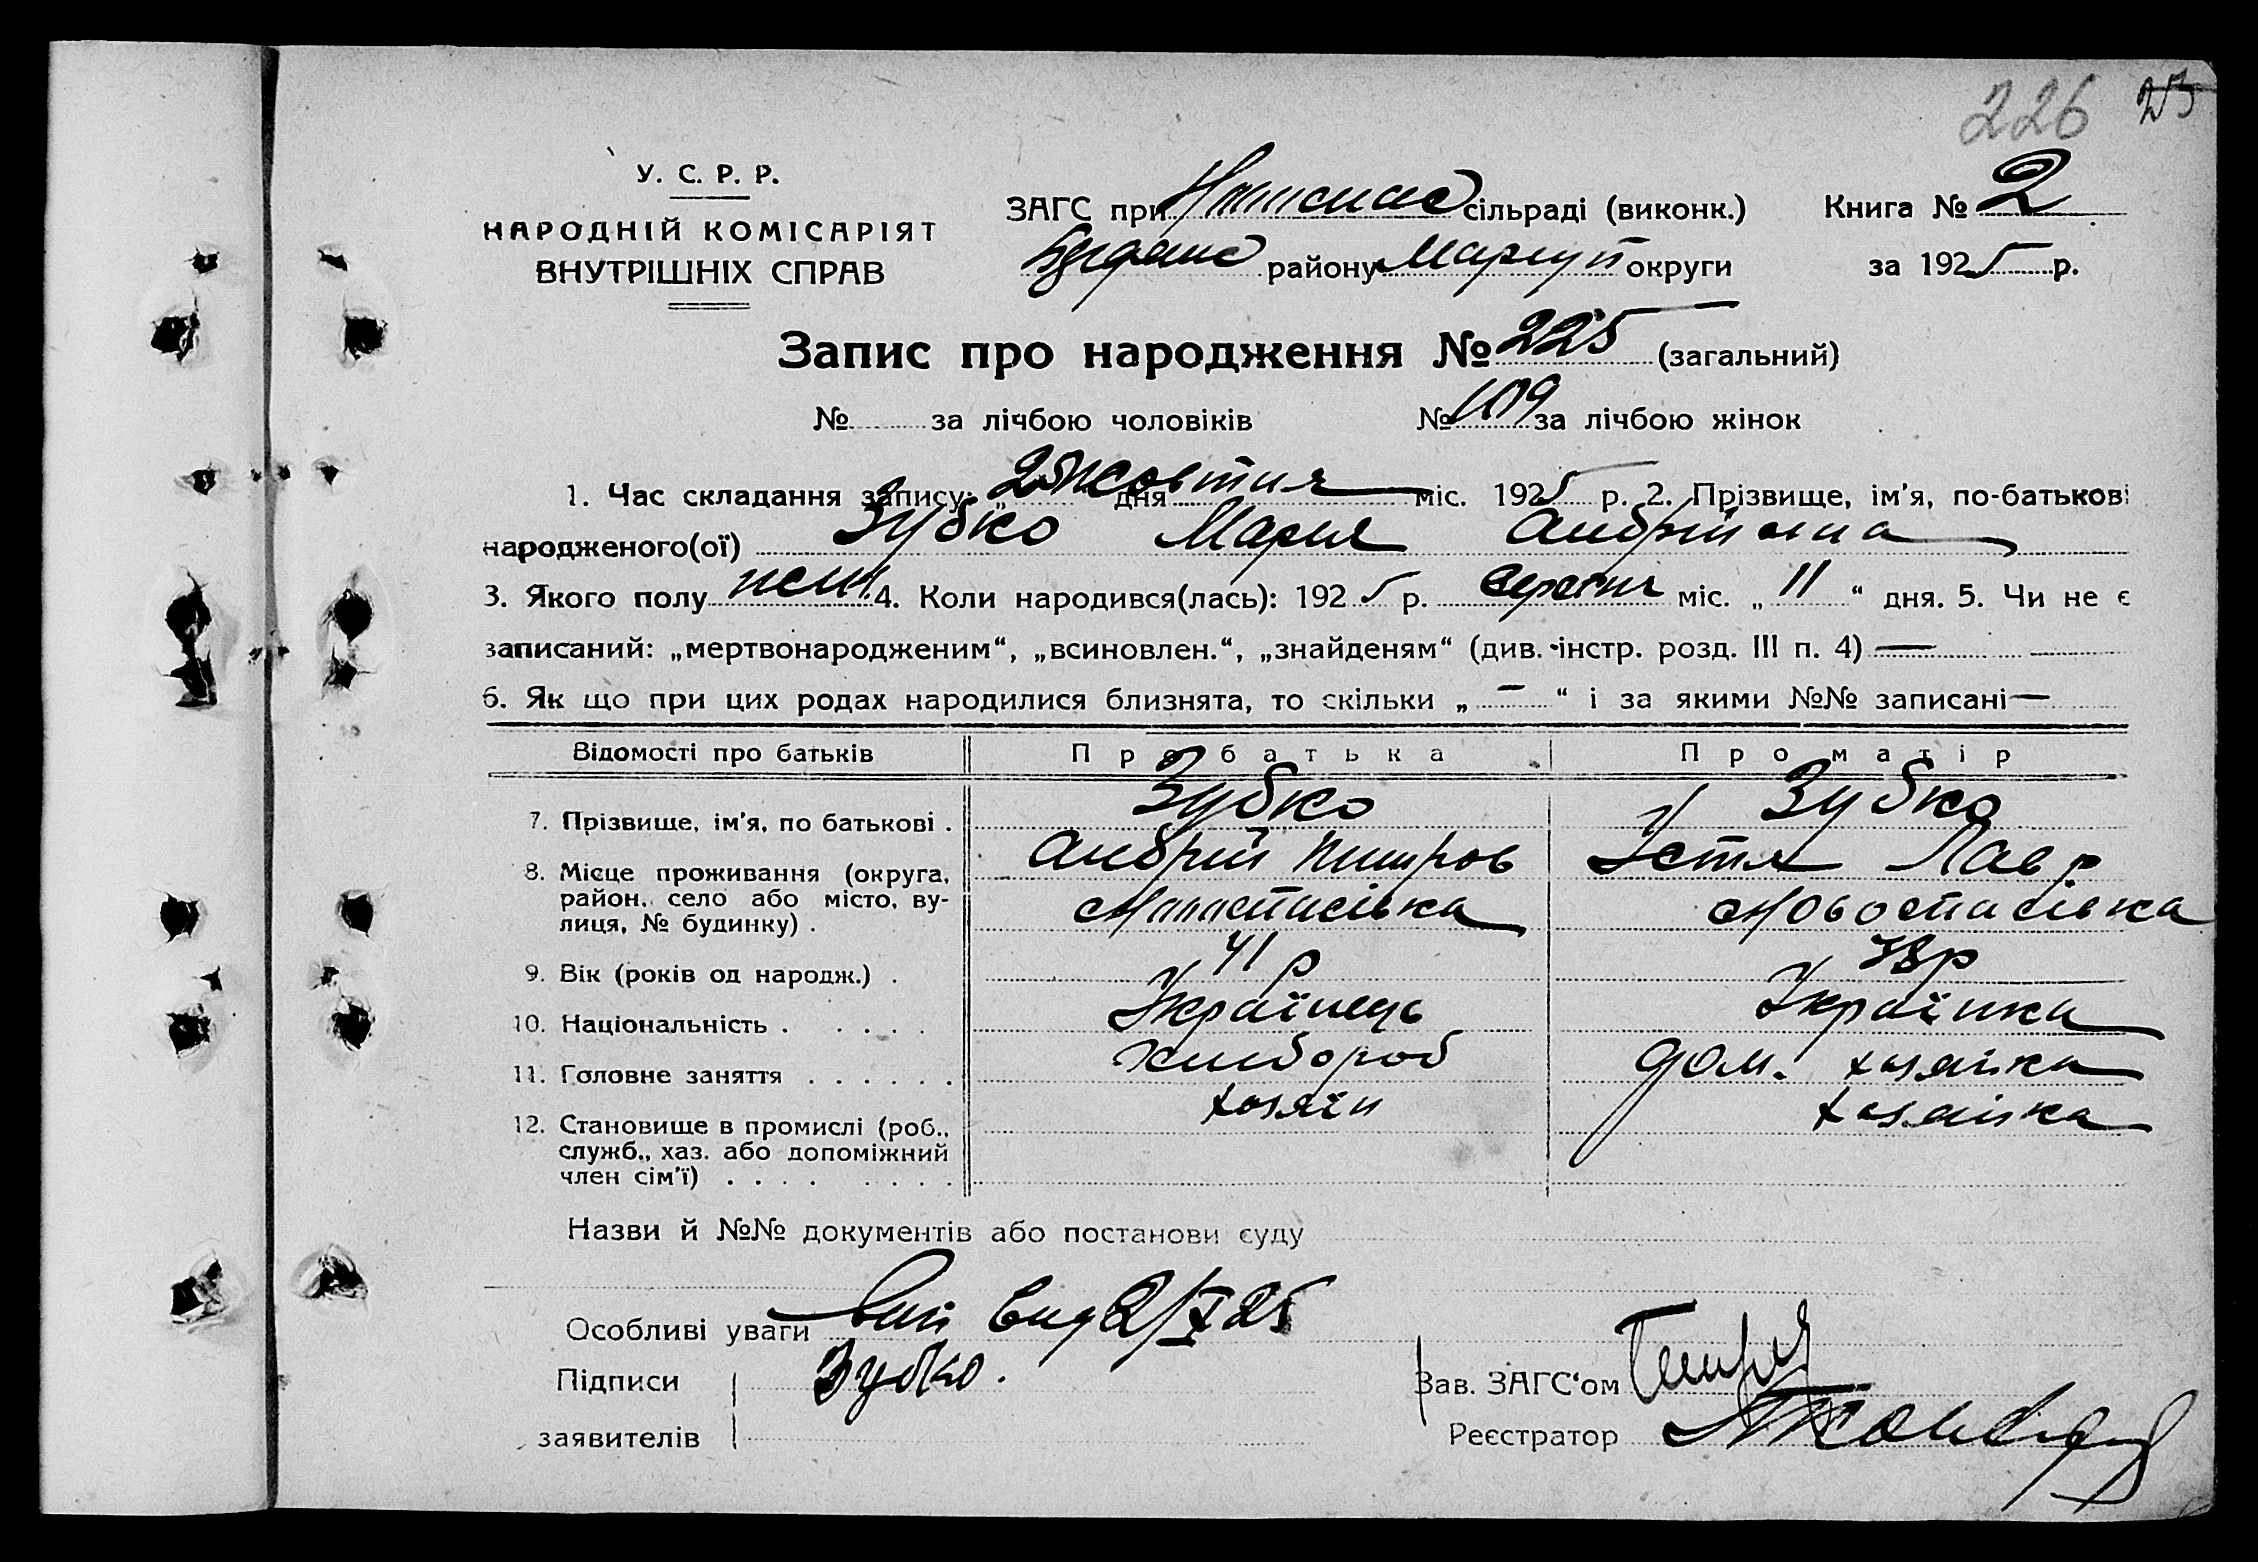 226 25
У. С. Р. Р.
НАРОДНІЙ КОМІСАРІЯТ
ВНУТРІШНІХ СПРАВ
ЗАГС при сільраді (виконк.) Книга № 2
району Маріуп округи за 1925 р.
Запис про народження № 225 (загальний)
№ за лічбою чоловіків № 109 за лічбою жінок
1. Час складання запису: „ дня жовтня міс. 1925 р. 2. Прізвище, ім'я, по-батькові
народженого(ої) Зубко Мария
3. Якого полу жен 4. Коли народився(лась): 1925 р. міс. „ 11 “ дня. 5. Чи не є
записаний: „мертвонародженим“, „всиновлен.“, „знайденям“ (див. інстр. розд. III п. 4) —
6. Як що при цих родах народилися близнята, то скільки „ — “ і за якими №№ записані —
Відомості про батьків Про батька Про матір
7. Прізвище, ім'я, по батькові . Зубко Зубко
Андрій Устя Лавр
8. Місце проживання (округа, район, село або місто, вулиця, № будинку) . Новоспасівка
9. Вік (років од народж.) . 41 р 38 р
10. Національність . . . . . Українець Українка
11. Головне заняття . . . . . . Хлибороб дом. хозяйка
12. Становище в промислі (роб., служб., хаз. або допоміжний член сім'ї) . . . . . . . . хозяїн хозяйка
Назви й №№ документів або постанови суду
Особливі уваги вид 2/X 25
Підписи Зубко. Зав. ЗАГС‘ом
заявителів Реєстратор